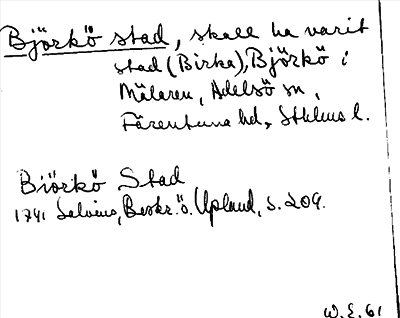 Björkö stad, skall ha varit
stad (Birka), Björkö i
Mälaren, Adelsö sn,
Färentuna hd, Sthlms l.
Biörkö Stad
1741 Salvius, Beskr. ö. Upland, s. 209.
W. E. 61